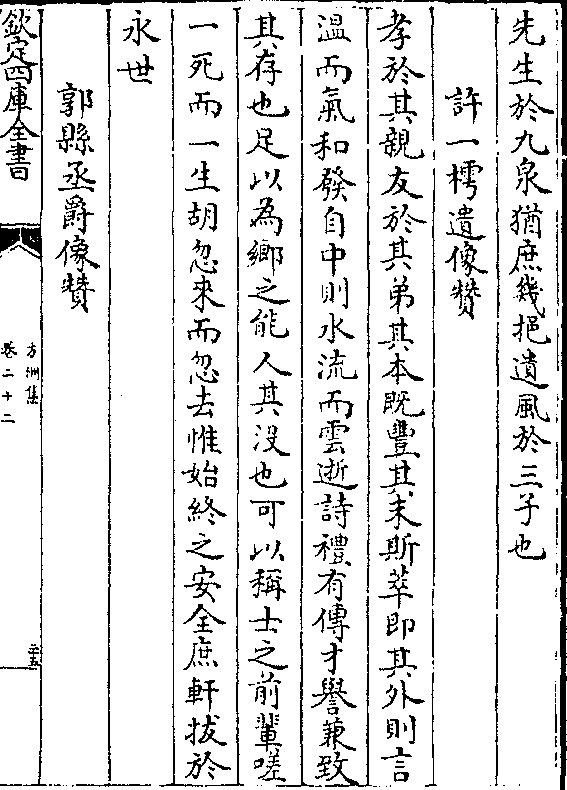 先生於九泉猶庶幾挹遺風於三子也
許一樗遺像贊
孝於其親友於其弟其本既豐其末斯萃即其外則言
溫而氣和發自中則水流而雲逝詩禮有傳才譽兼致
其存也足以為鄉之能人其沒也可以稱士之前輩嗟
一死而一生胡忽來而忽去惟始終之安全庶軒拔於
永世
郭縣丞爵像贊
欽定四庫全書
方洲集
卷二十二
二十五